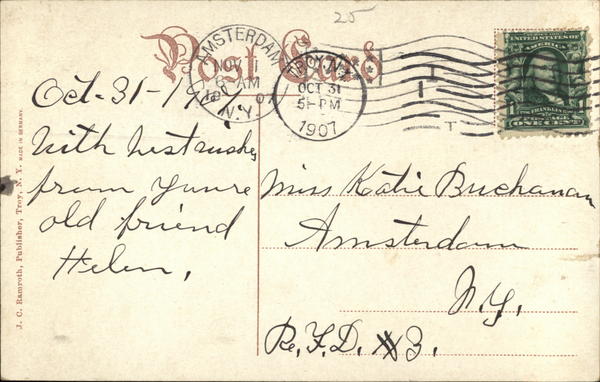 25
Post Card
AMSTERDAM
NOV 1
8 AM
07
N.Y.
TROY, N.Y.
OCT 31
5-PM
1907
UNITED STATES OF
AMERICA
FRANKLIN
POSTAGE
ONE CENT
Oct-31-19
With best wishes
from youre
old friend
Helen,
Miss Katie Buchanan
Amsterdam
N.Y.
R.F.D. #3.
J. C. Ramroth, Publisher, Troy, N. Y. MADE IN GERMANY.